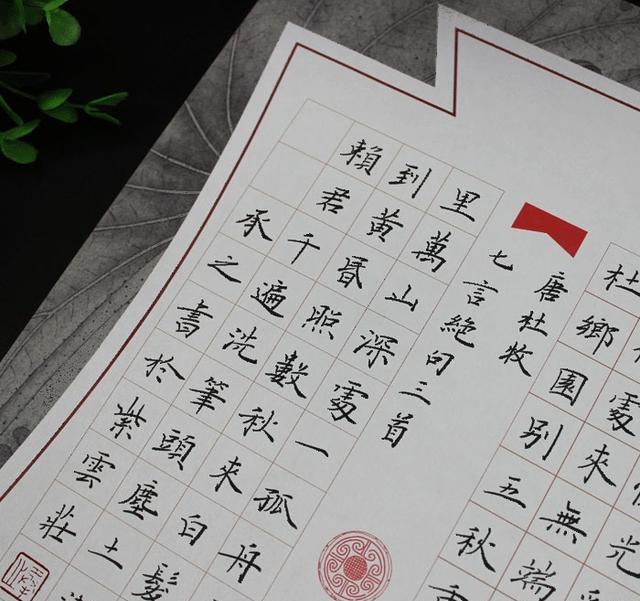 光
處來無端
杜鄉園別五秋
唐杜牧
七言絕句三首
里萬山深處一孤舟
到黃昏照數秋來白髮
賴君千遍洗筆頭塵土
承之書於紫雲莊